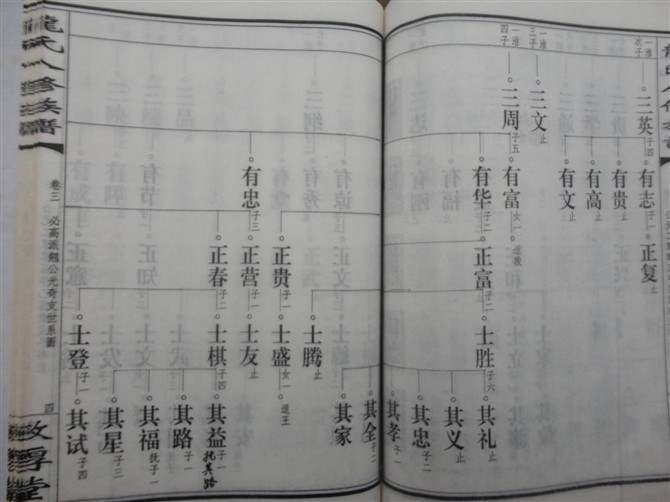 一淮次子
三英子四
有志子一
正复止
有贵止
有高止
有文止
一淮三子
三文止
一淮四子
三周子五
有富女一
适
有华子二
正富子二
士胜子六
其礼止
其义止
其忠子二
其孝子一
其全子二
其家
士腾止
正贵子一
士盛女一
适王
有忠子三
正营子一
士友止
正春子二
士棋子四
其益子一
抚其路
其路子一
其福抚子一
其星子三
士登子一
其试子四
龙氏八修族谱
卷三
必高派魁公光奇支世系图
四
敦厚堂